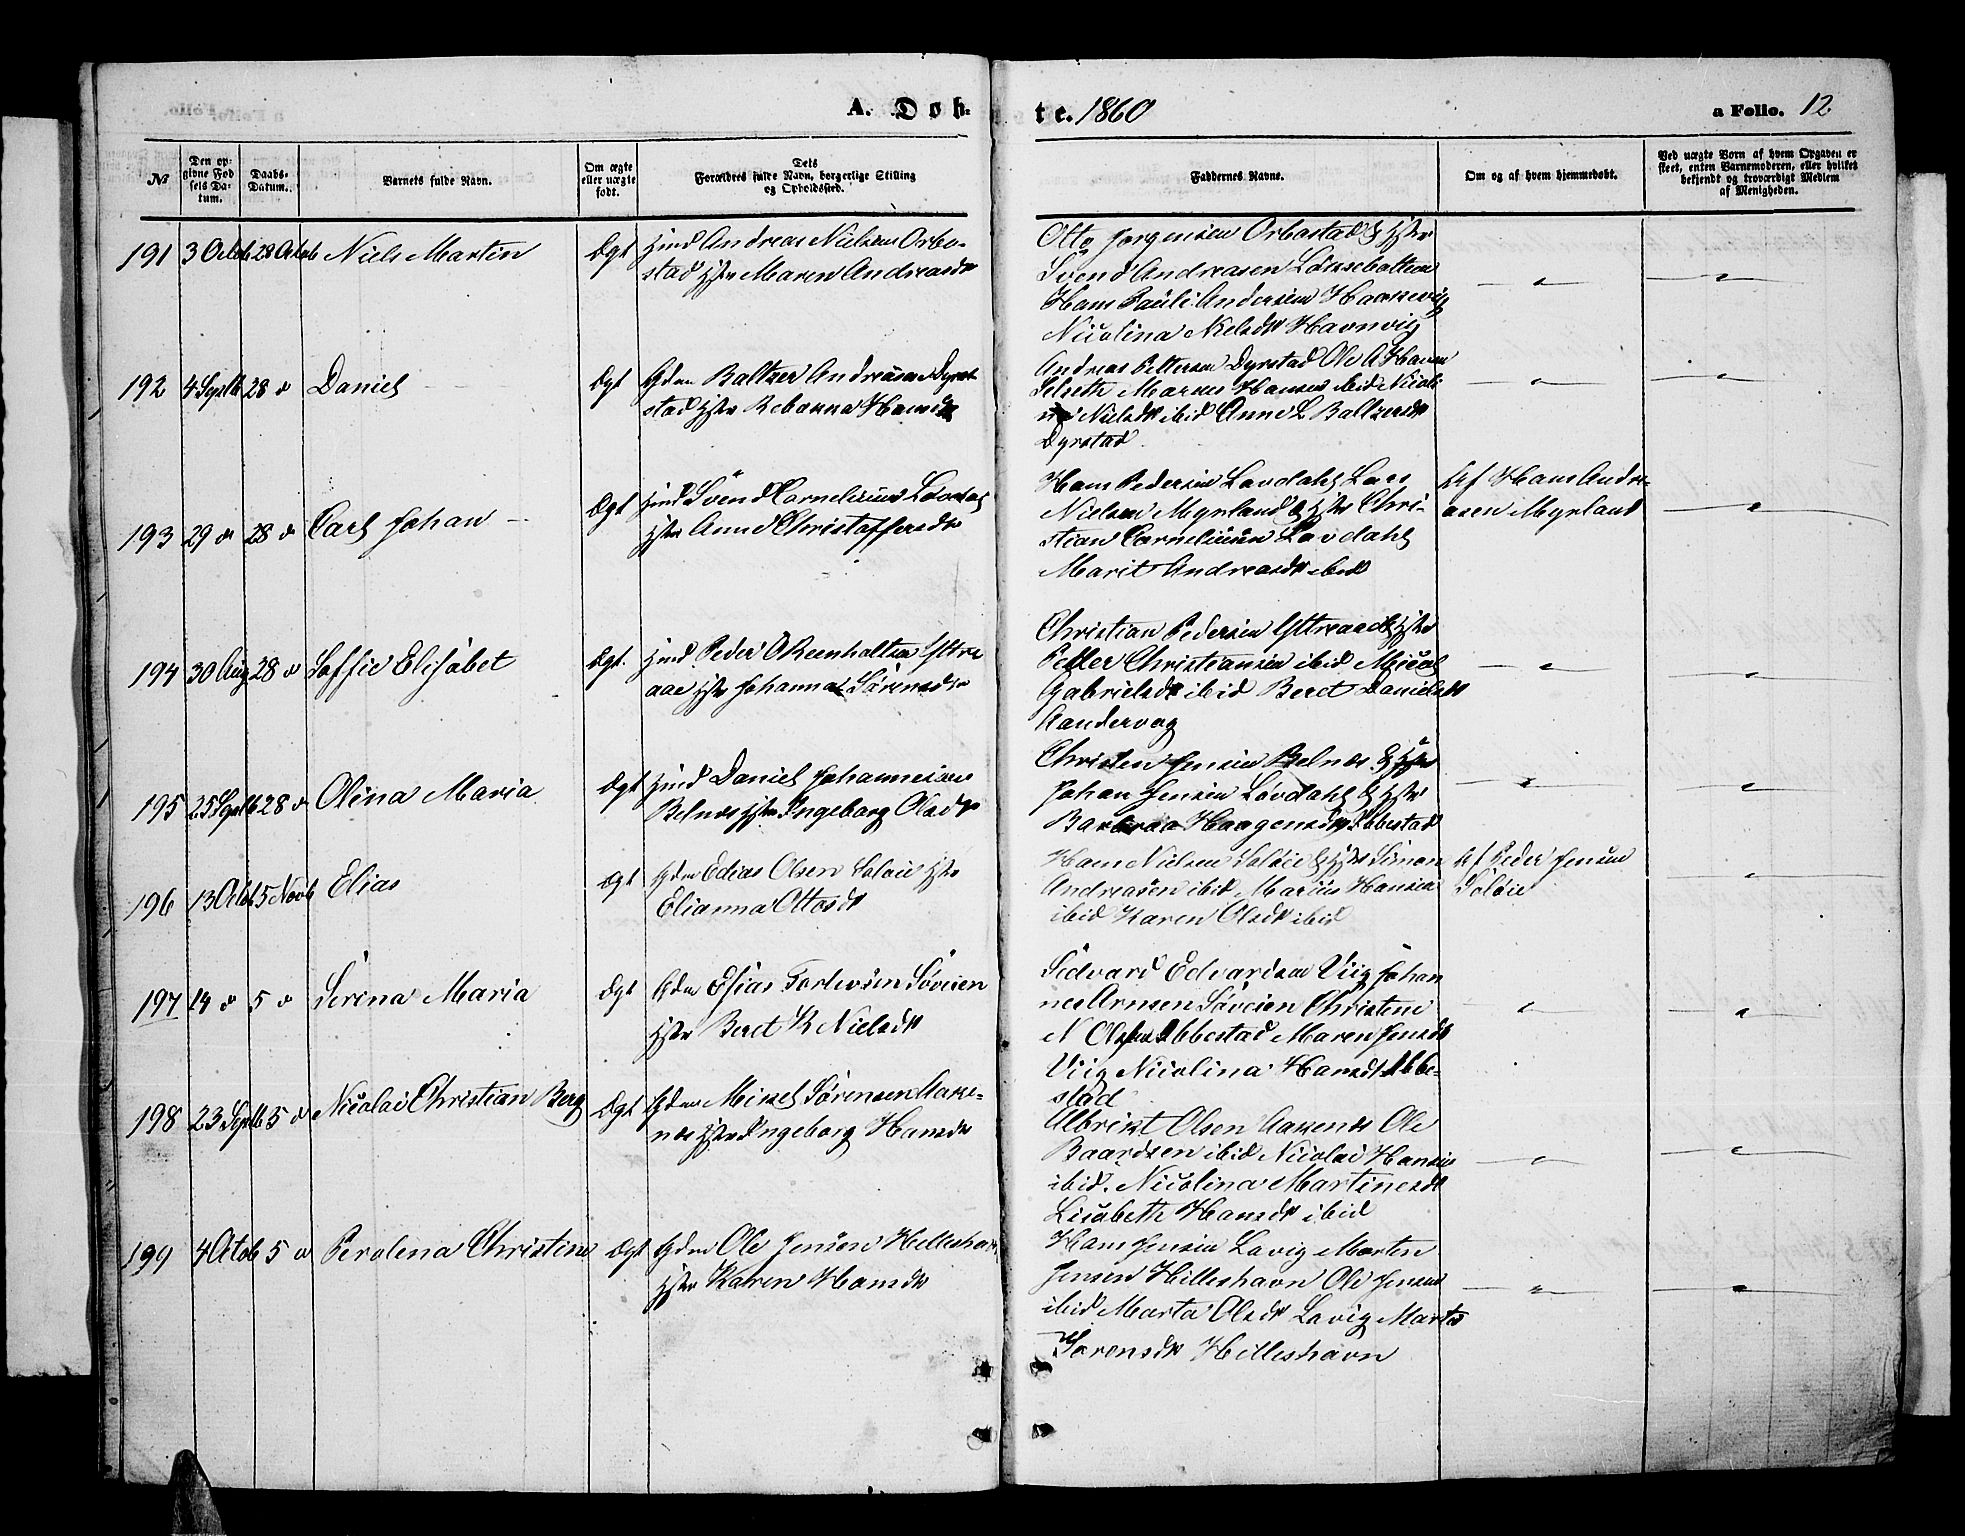 A. Døb-
te. 1860
a Folio. 12
№
Den op-
givne Fød
sels Da-
tum.
Daabs-
Datum.
Barnets fulde Navn.
Om ægte
eller uægte
født.
Dets
Forældres fulde Navn, borgerlige Stilling
og Opholdssted.
Faddernes Navne.
Om og af hvem hjemmedøbt.
Ved uægte Børn af hvem Opgaven er
skeet, enten Barnemoderen, eller hvilket
bekjendt og troværdigt Medlem
af Menigheden.
191 3 Octob 28 Octob Niels Martin Ægt Hmd Andreas Nielsen Orbo-
stad Hstr Maren Andreasdr
Otto Jørgensen Orbostad & Hstr
Svend Andreasen
Hans Pauli Andersen
Nicolina Nielsdr Havnvig
192 4 Septb 28 " Daniel Ægt Gdm Baltzer Andreasen Dyr
stad Hstr Rebanna Hansdr
Andreas Pettersen Dyrstad Ole A
Selseth Hansen ibid Nicoli
na Nielsdr ibid Anne L Baltzersdr
Dyrstad
193 29 " 28 " Carl Johan Ægt Hmd Svend Cornelius Løvdahl
Hstr Anne Christoffersdr
Hans Pedersen Løvdahl Lars
Nielsen Myrland & Hstr Chri-
stian Corneliusen Løvdahl
Marit Andreasdr ibid
Af Hans Andre-
asen Myrland
194 30 Aug 28 " Soffie Elisabet Ægt. Hmd Peder O Reenholtsen Yttre
aae Hstr Johanna Sørensdr
Christian Pedersen & Hstr
Petter Christiansen ibid
Gabrielsdr ibid Beret Danielsdr
Aandervag
195 25 Septb 28 " Olina Maria Ægt Hmd Daniel Johannesen
Belnes Hstr Ingeborg Olsdr
Christen Jensen Belnes & Hstr
Johan Jensen Løvdahl & Hstr
Barbraa Haagensdr Ibbestad
196 13 Octob 5 Novb Elias Ægt Gdm Edias Olsen Soløie Hstr
Elianna Ottosdr
Hans Nielsen Soløie & Hstr Simon
Andreasen ibid Marius Hansen
ibid Karen Olsdr ibid
Af Peder Jensen
Soløie
197 14 " 5 " Serina Maria Ægt Gdm Esias Torlevsen Søveien
Hstr Beret K Nielsdr
Sidvard Edvardsen Viig Johan
nes Arnsen Søveien Christen
N Olsen Ibbestad Maren Jensdr
Viig Nicolina Hansdr Ibbe-
stad
198 23 Septb 5 " Nicolai Christian Berg Ægt Gdm Mikael Sørensen Aake-
nes Hstr Ingeborg Hansdr
Albrigt Olsen Aakenes Ole
Baardsen ibid Nicolai Hansen
ibid. Nicolina Martinesdr
Lisabeth Hansdr ibid
199 4 Octob 5 " Perolena Christine Ægt Gdm Ole Jensen Helleshavn
Hstr Karen Hansdr
Hans Jensen Lavig Morten
Jensen Hilleshavn Ole Jensen
ibid Marta Olsdr Lavig Marta
Sørensdr Hilleshavn